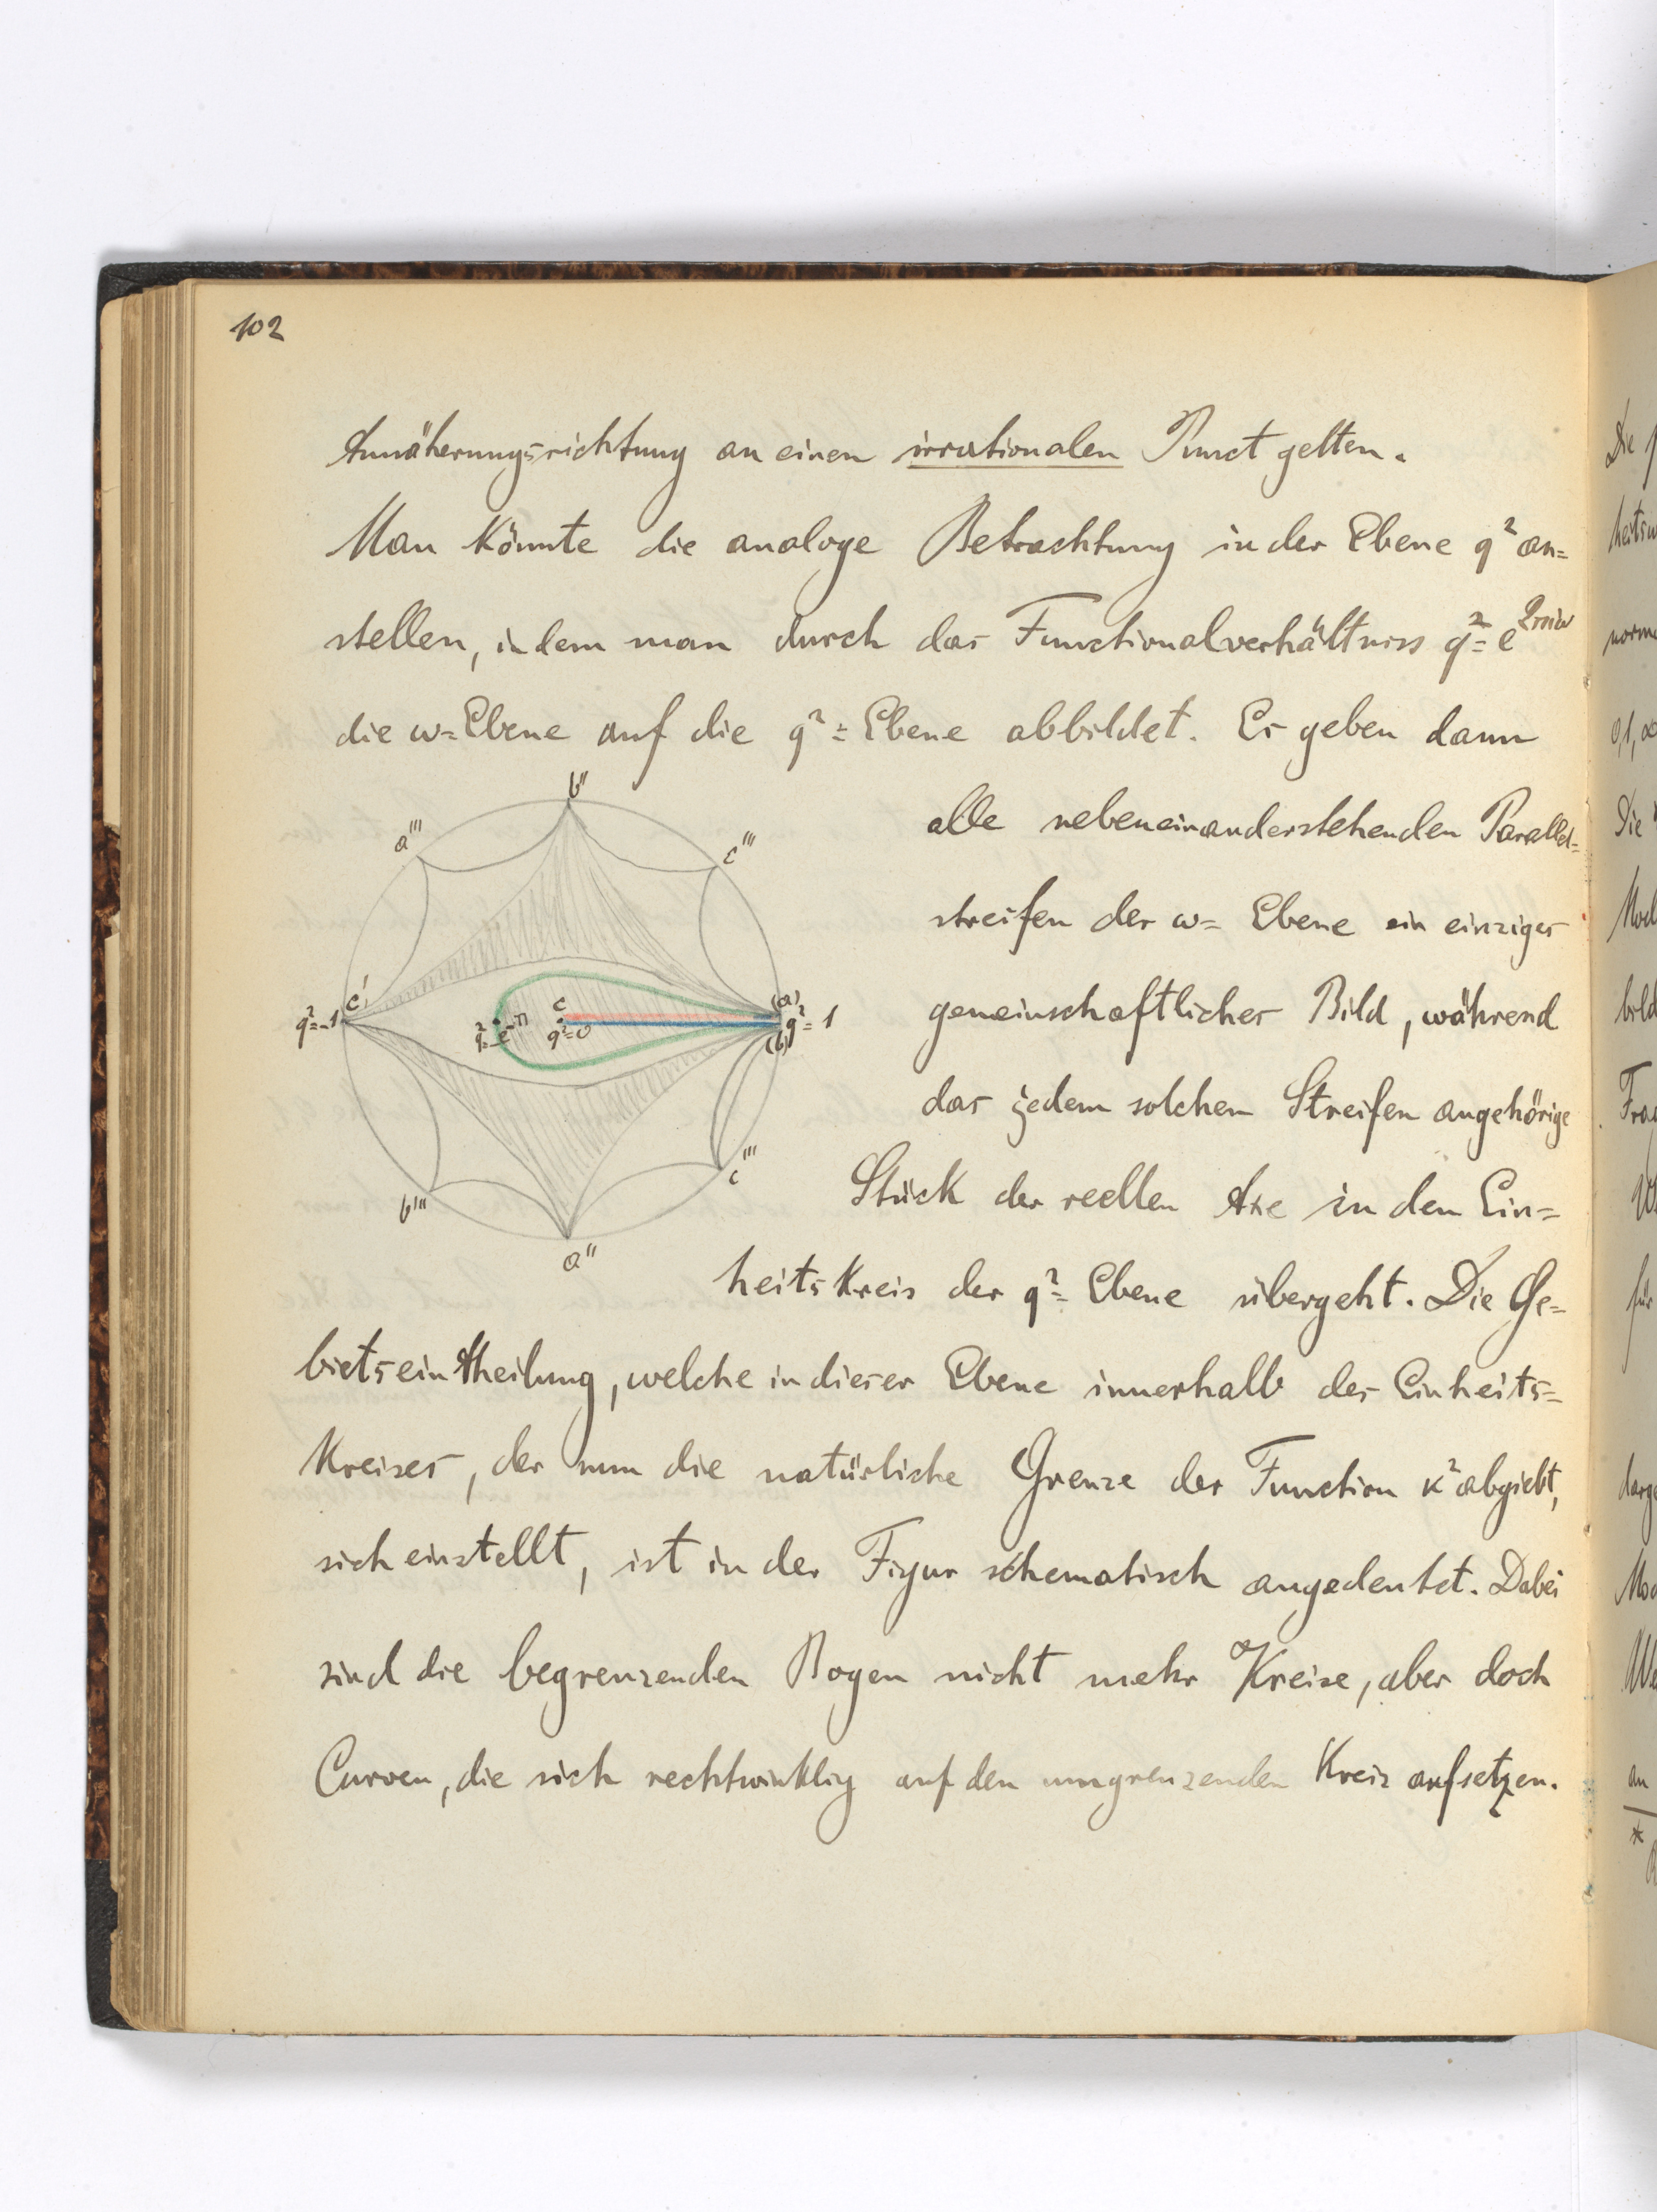 102
Annäherungsrichtung an einen irrationalen Punct gelten.
Man könnte die analoge Betrachtung in der Ebene q² an=
stellen, indem man durch das Functionalverhältniss q² = e^2πiω
die ω=Ebene auf die q²=Ebene abbildet. Es geben dann
alle nebeneinanderstehenden Parallel=
streifen der ω= Ebene ein einziges
gemeinschaftliches Bild, während
das jedem solchen Streifen angehörige
Stück der reellen Axe in den Ein=
heitskreis der q²= Ebene übergeht. Die Ge=
bietseintheilung, welche in dieser Ebene innerhalb des Einheits=
Kreises, der nun die natürliche Grenze der Function κ² abgiebt,
sich einstellt, ist in der Figur schematisch angedeutet. Dabei
sind die begrenzenden Bogen nicht mehr Kreise, aber doch
Curven, die sich rechtwinklig auf den umgrenzenden Kreis aufsetzen.
b''
a'''
c'''
q²=-1
c'
q²=-e^-π
c
q²=0
(a)
q²=1
(b)
c'''
b'''
a''
Die
0,1,∞
Die
bild
für
an
*